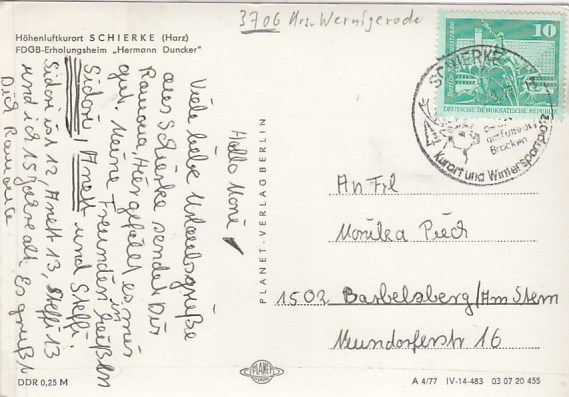 Höhenluftkurort SCHIERKE (Harz)
FDGB-Erholungsheim „Hermann Duncker"
3706 Krs. Wernigerode
Hallo Moni!
Viele liebe Urlaubsgrüße
aus Schierke sendet Dir
Ramona, Hier gefällt es mir
gut. Meine Freunden heißen
Sidori, Anett und Steffi.
Sidori ist 12, Anett 13, Steffi 13
und ich 15 Jahre alt. Es grüßt
Dich Ramona
PLANET-VERLAG BERLIN
10
DEUTSCHE DEMOKRATISCHE REPUBLIK
SCHIERKE
am Fuße des
Brocken
Kurort und Wintersportplatz
An Frl
Monika Piech
1502 Babelsberg/Am Stern
Neuendorferstr 16
PLANET
DDR 0,25 M
A 4/77 IV-14-483 03 07 20 455